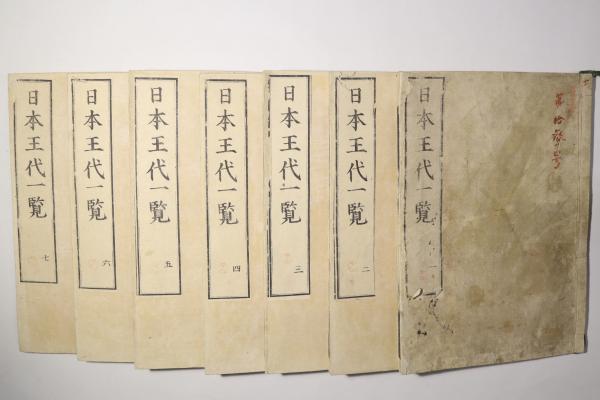 日本王代一覧
日本王代一覧 二
日本王代一覧 三
日本王代一覧 四
日本王代一覧 五
日本王代一覧 六
日本王代一覧 七